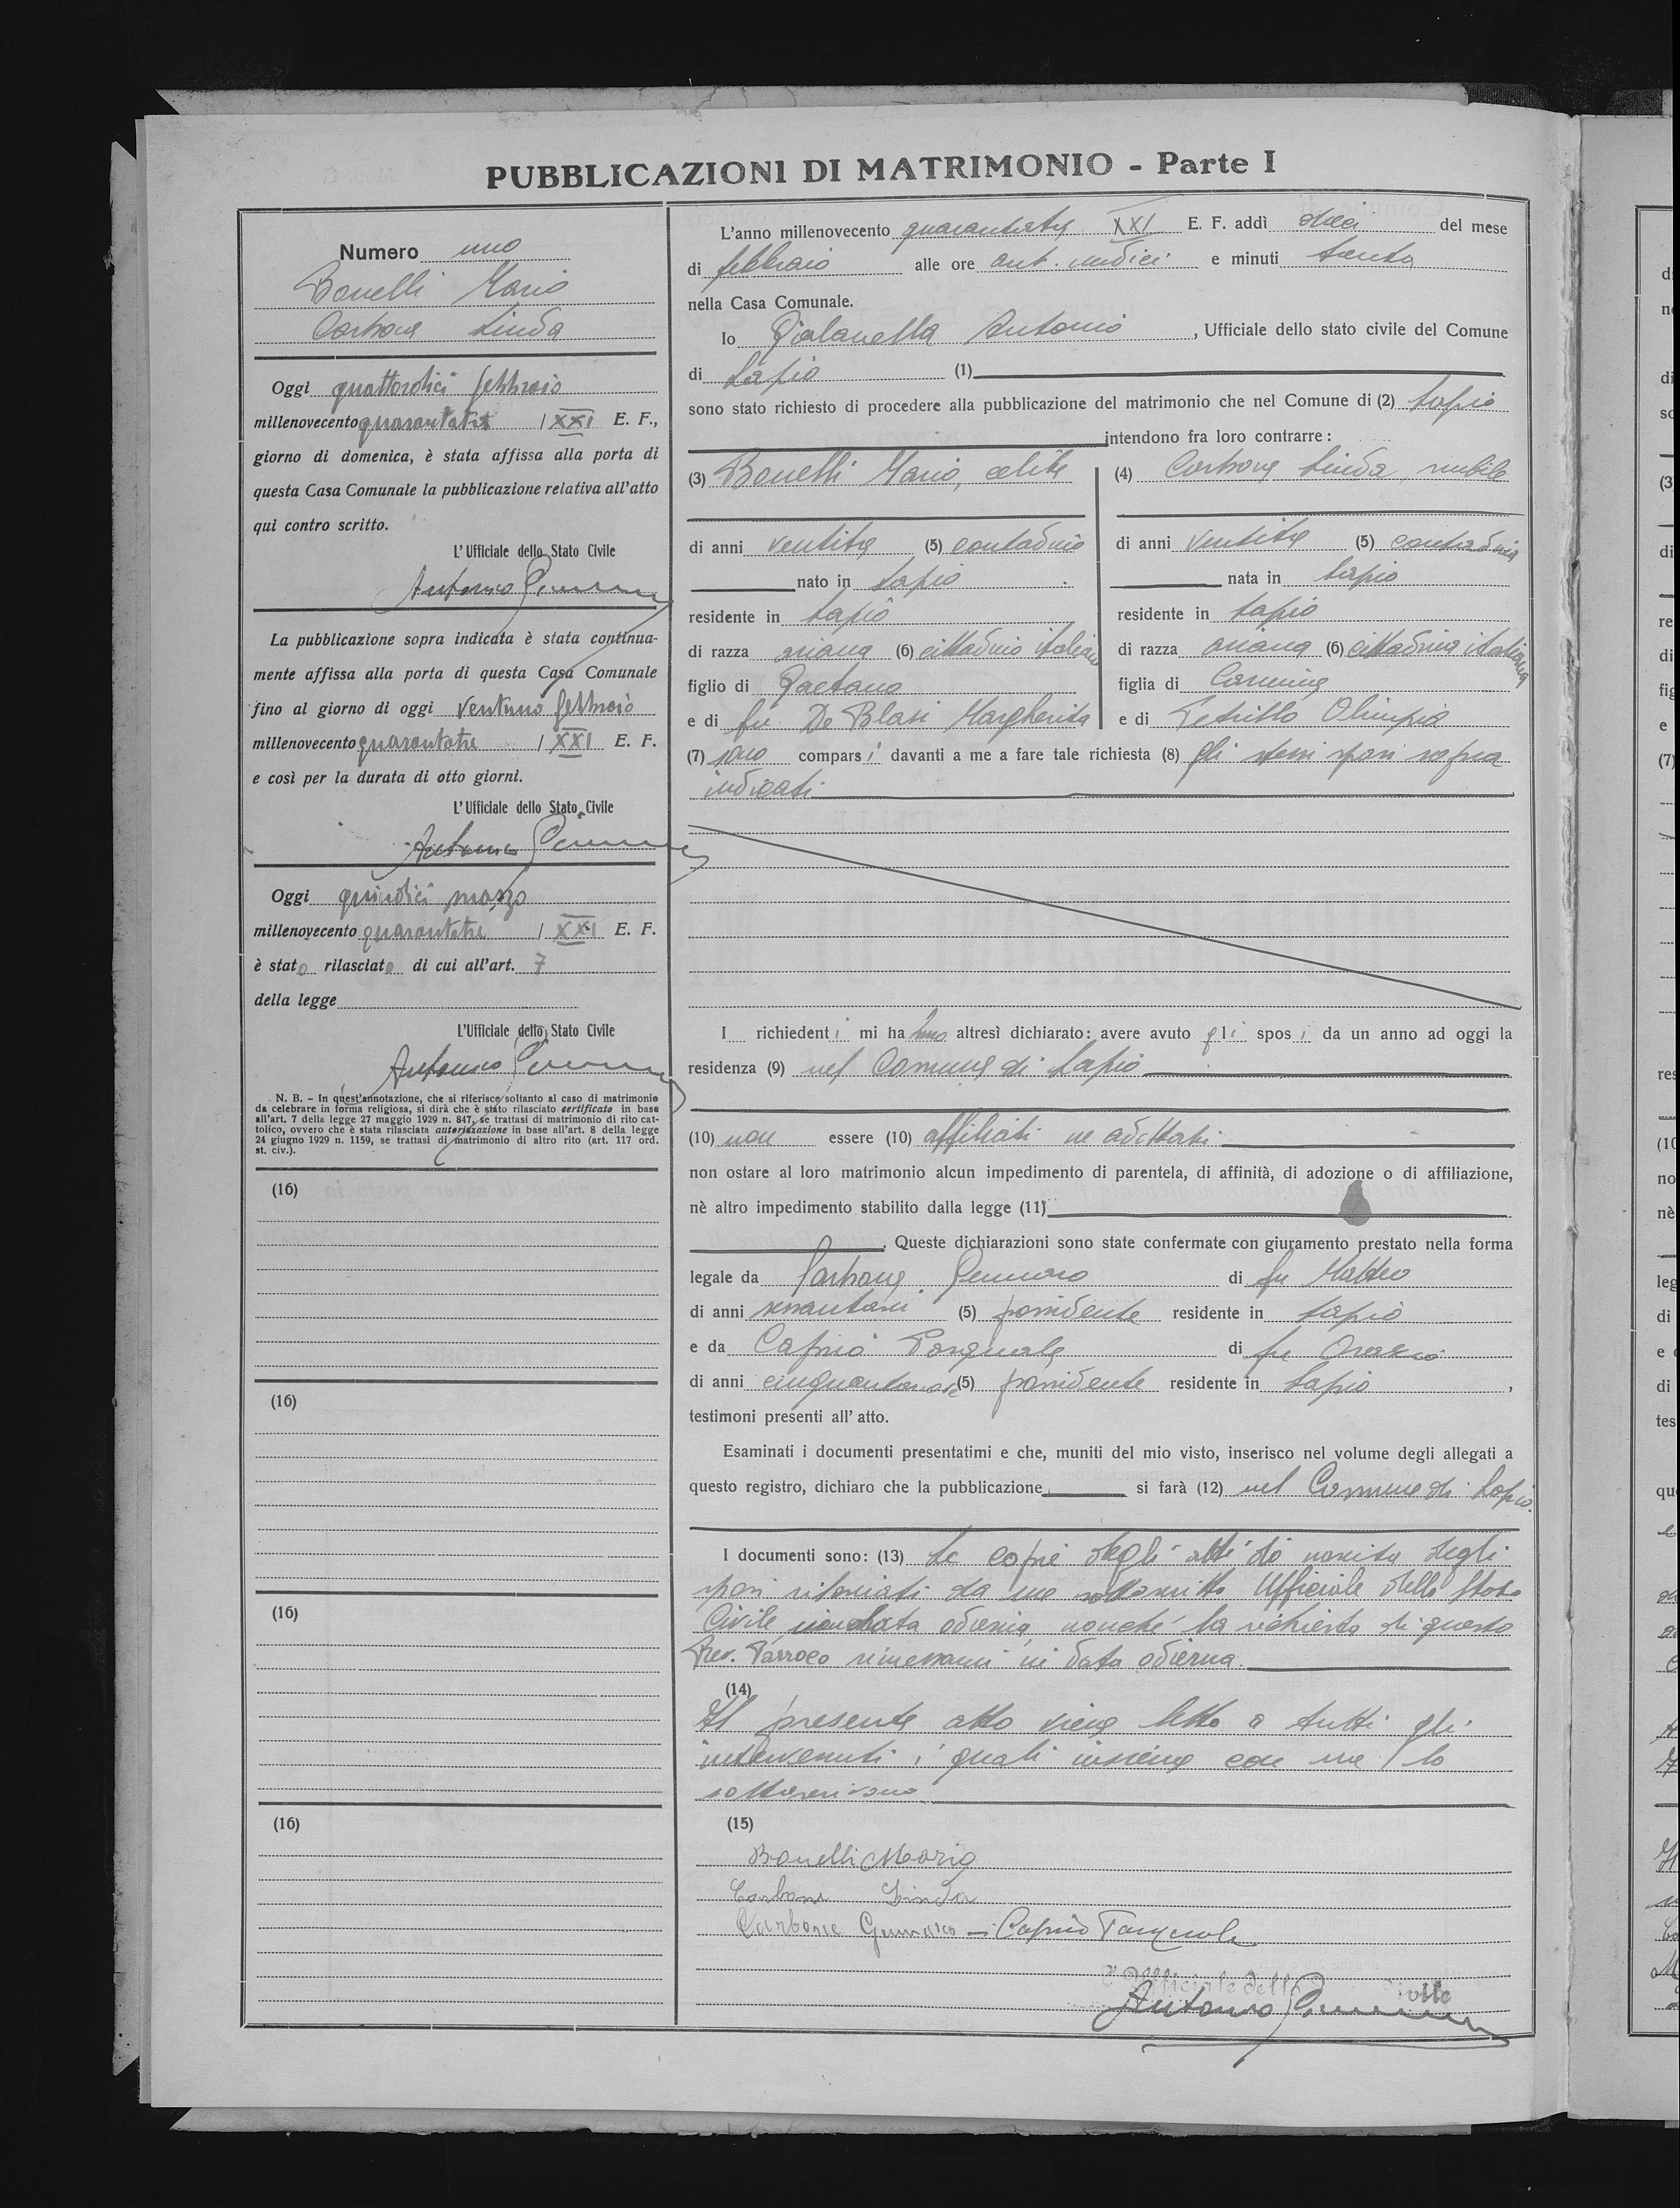 PUBBLICAZIONI DI MATRIMONIO - Parte I
Numero uno
Bonelli Mario
Carbone Linda
Oggi quattordici febbraio
millenovecento quarantatre / XXI E. F.,
giorno di domenica, è stata affissa alla porta di
questa Casa Comunale la pubblicazione relativa all'atto
qui contro scritto.
L'Ufficiale dello Stato Civile
Antonio
La pubblicazione sopra indicata è stata continua-
mente affissa alla porta di questa Casa Comunale
fino al giorno di oggi ventuno febbraio
millenovecento quarantatre / XXI E. F.
e così per la durata di otto giorni.
L'Ufficiale dello Stato Civile
Antonio
Oggi quindici marzo
millenovecento quarantatre / XXI E. F.
è stato rilasciato di cui all'art. 7
della legge
L'Ufficiale dello Stato Civile
Antonio
N. B. - In quest'annotazione, che si riferisce soltanto al caso di matrimonio
da celebrare in forma religiosa, si dirà che è stato rilasciato certificato in base
all'art. 7 della legge 27 maggio 1929 n. 847, se trattasi di matrimonio di rito cat-
tolico, ovvero che è stata rilasciata autorizzazione in base all'art. 8 della legge
24 giugno 1929 n. 1159, se trattasi di matrimonio di altro rito (art. 117 ord.
st. civ.).
(16)
(16)
(16)
(16)
L'anno millenovecento quarantatre XXI E. F. addì dieci del mese
di febbraio alle ore ant. undici e minuti trenta
nella Casa Comunale.
Io Antonio, Ufficiale dello stato civile del Comune
di Lapio (1)
sono stato richiesto di procedere alla pubblicazione del matrimonio che nel Comune di (2) Lapio
intendono fra loro contrarre:
(3) Bonelli Mario, celibe
di anni ventitre (5) contadino
nato in Lapio
residente in Lapio
di razza ariana (6) cittadino italiano
figlio di Gaetano
e di fu De Blasi Margherita
(4) Carbone Linda, nubile
di anni ventitre (5) contadina
nata in Lapio
residente in Lapio
di razza ariana (6) cittadina italiana
figlia di Carmine
e di Petrillo Olimpia
(7) sono comparsi davanti a me a fare tale richiesta (8) gli stessi sposi sopra
indicati
I richiedenti mi hanno altresì dichiarato: avere avuto gli sposi da un anno ad oggi la
residenza (9) nel Comune di Lapio
(10) non essere (10) affiliati ne adottati
non ostare al loro matrimonio alcun impedimento di parentela, di affinità, di adozione o di affiliazione,
nè altro impedimento stabilito dalla legge (11)
. Queste dichiarazioni sono state confermate con giuramento prestato nella forma
legale da Carbone Gennaro di fu Matteo
di anni (5) possidente residente in Lapio
e da Caprio Pasquale di fu Orazio
di anni cinquantanove (5) possidente residente in Lapio,
testimoni presenti all'atto.
Esaminati i documenti presentatimi e che, muniti del mio visto, inserisco nel volume degli allegati a
questo registro, dichiaro che la pubblicazione si farà (12) nel Comune di Lapio.
I documenti sono: (13) Le copie degli atti di nascita degli
sposi rilasciati da me sottoscritto Ufficiale dello Stato
Civile in data odierna, nonché la richiesta di questo
Rev. Parroco rimessami in data odierna.
(14)
Il presente atto viene letto a tutti gli
intervenuti i quali insieme con me lo
sottoscrivono
(15)
Bonelli Mario
Carbone Linda
Carbone Gennaro - Caprio Pasquale
L'Ufficiale dello Civile
Antonio